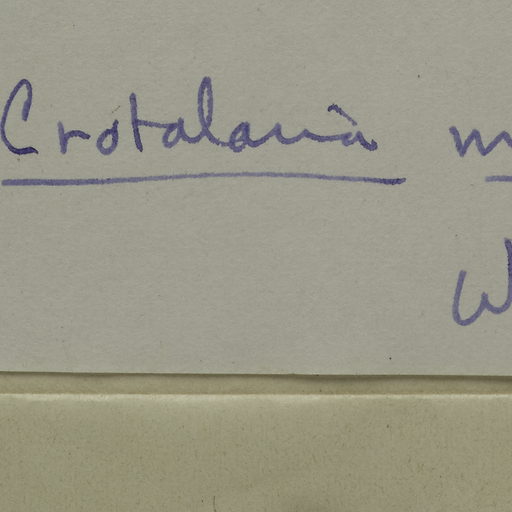 Crotalaria m
W